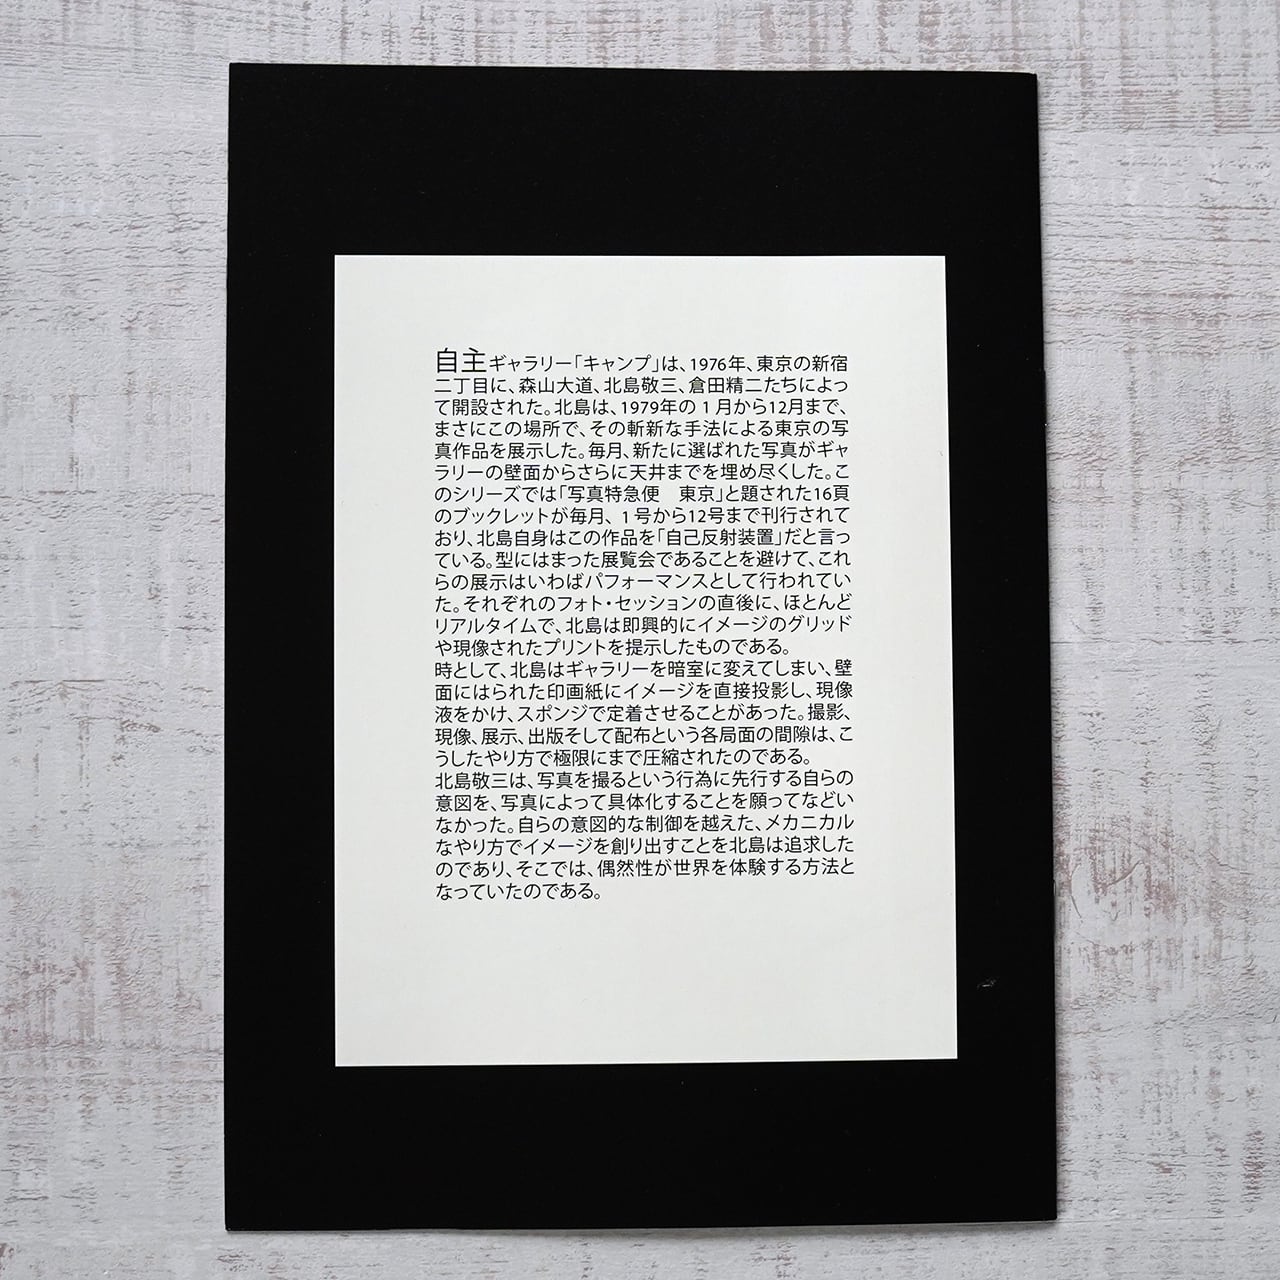 自主ギャラリー「キャンプ」は、1976年、東京の新宿
二丁目に、森山大道、北島敬三、倉田精二たちによっ
て開設された。北島は、1979年の1月から12月まで、
まさにこの場所で、その斬新な手法による東京の写
真作品を展示した。毎月、新たに選ばれた写真がギャ
ラリーの壁面からさらに天井までを埋め尽くした。こ
のシリーズでは「写真特急便　東京」と題された16頁
のブックレットが毎月、1号から12号まで刊行されて
おり、北島自身はこの作品を「自己反射装置」だと言っ
ている。型にはまった展覧会であることを避けて、これ
らの展示はいわばパフォーマンスとして行われてい
た。それぞれのフォト・セッションの直後に、ほとんど
リアルタイムで、北島は即興的にイメージのグリッド
や現像されたプリントを提示したものである。
時として、北島はギャラリーを暗室に変えてしまい、壁
面にはられた印画紙にイメージを直接投影し、現像
液をかけ、スポンジで定着させることがあった。撮影、
現像、展示、出版そして配布という各局面の間隙は、こ
うしたやり方で極限にまで圧縮されたのである。
北島敬三は、写真を撮るという行為に先行する自らの
意図を、写真によって具体化することを願ってなどい
なかった。自らの意図的な制御を越えた、メカニカル
なやり方でイメージを創り出すことを北島は追求した
のであり、そこでは、偶然性が世界を体験する方法と
なっていたのである。